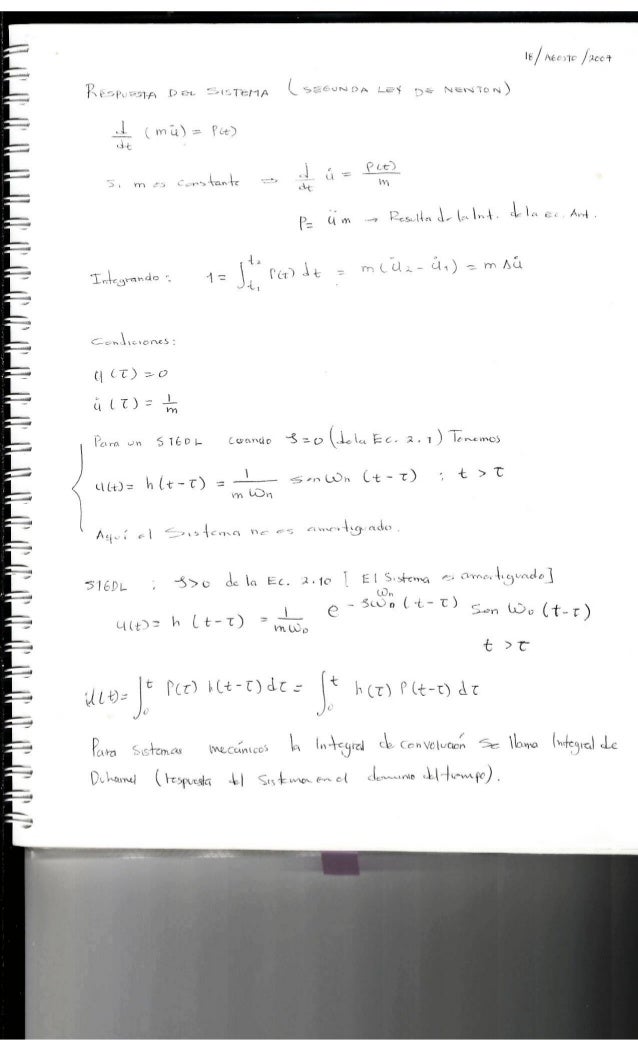 18/AGOSTO/2007
RESPUESTA DEL SISTEMA (SEGUNDA LEY DE NEWTON)
d/dt (m u̇) = P(t)
Si m es constante ⇒ d/dt u̇ = P(t)/m
P = ü m → Resulta de la Int. de la ec. Ant.
Integrando: 1 = ∫_{t₁}^{t₂} P(t) dt = m(u̇₂ - u̇₁) = m Δu̇
Condiciones:
u(τ) = 0
u̇(τ) = 1/m
Para un S1GDL cuando ζ=0 (de la Ec. 2.1) Tenemos
u(t) = h(t-τ) = 1/(m ωn) sen ωn (t-τ) ; t > τ
Aquí el Sistema no es amortiguado.
S1GDL ; ζ>0 de la Ec. 2.10 [El Sistema es amortiguado]
u(t) = h(t-τ) = 1/(m ωD) e^{-ζωn(t-τ)} Sen ωD (t-τ)
t > τ
u(t) = ∫₀^t P(τ) h(t-τ) dτ = ∫₀^t h(τ) P(t-τ) dτ
Para Sistemas mecánicos la Integral de convolución se llama Integral de
Duhamel (respuesta del Sistema en el dominio del tiempo).